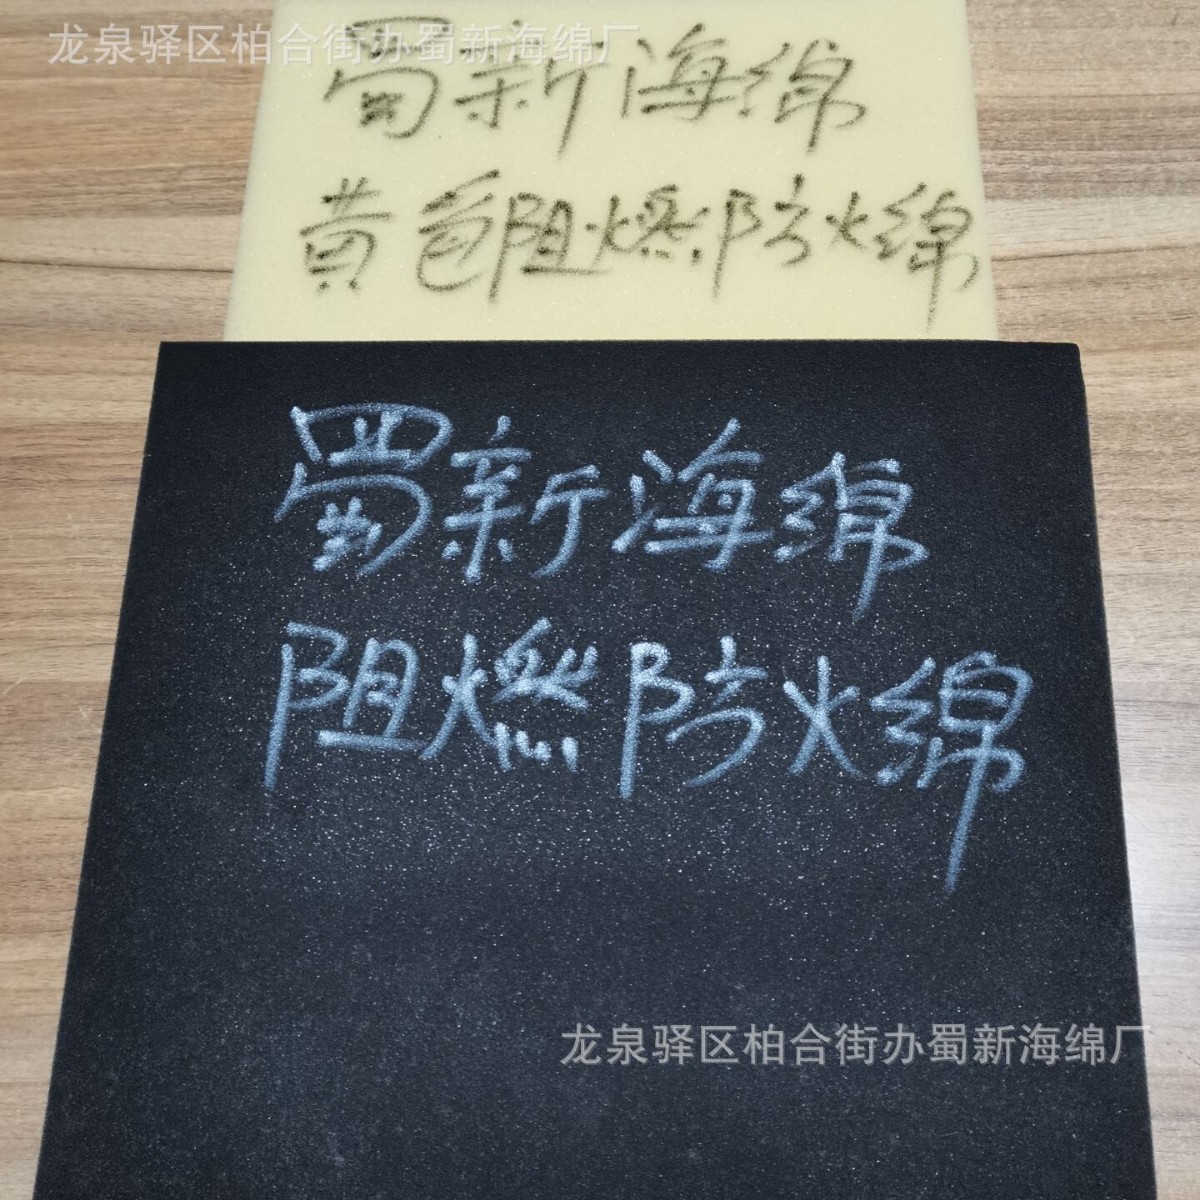 龙泉驿区柏合街办蜀新海绵厂
蜀新海绵
黄色阻燃防火绵
蜀新海绵
阻燃防火绵
龙泉驿区柏合街办蜀新海绵厂